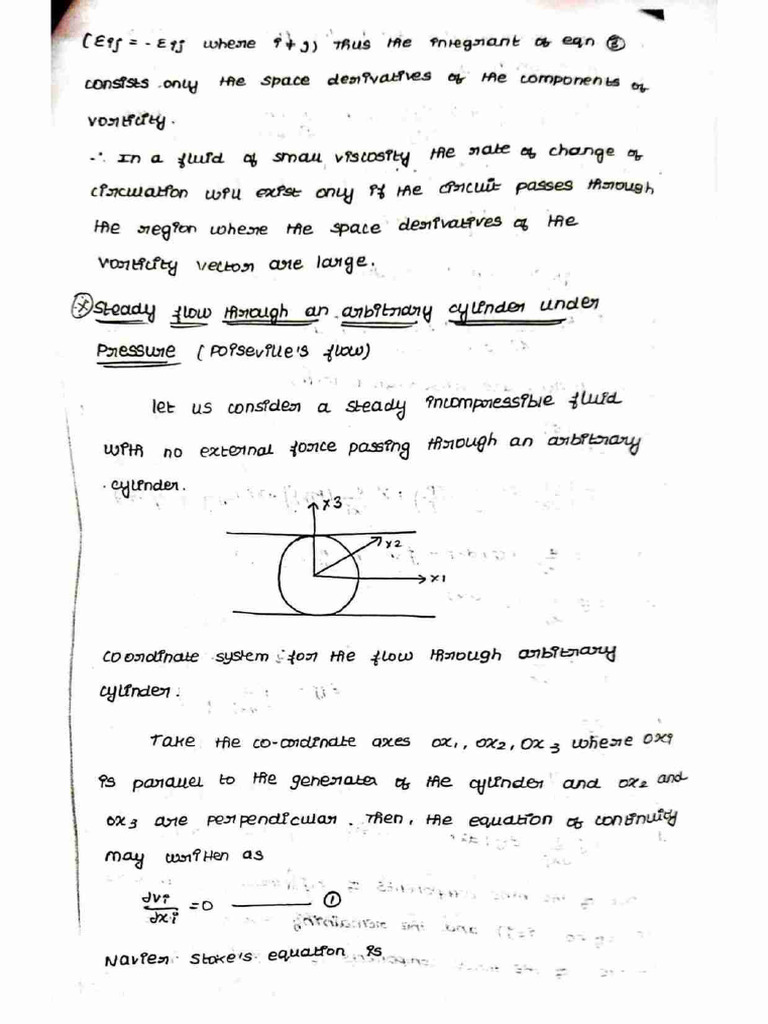 (εij = - εij where i ≠ j) Thus the integrant of eqn ②
consists only the space derivatives of the components of
vorticity.
∴ In a fluid of small viscosity the rate of change of
circulation will exist only if the circuit passes through
the region where the space derivatives of the
vorticity vector are large.
Steady flow through an arbitrary cylinder under
Pressure (Poiseville's flow)
let us consider a steady incompressible fluid
with no external force passing through an arbitrary
cylinder.
x3
x2
x1
coordinate system for the flow through arbitrary
cylinder.
Take the co-ordinate axes ox1, ox2, ox3 where oxi
is parallel to the generater of the cylinder and ox2 and
ox3 are perpendicular. Then, the equation of continuity
may written as
dvi/dxi = 0 ——— ①
Navier Stoke's equation is